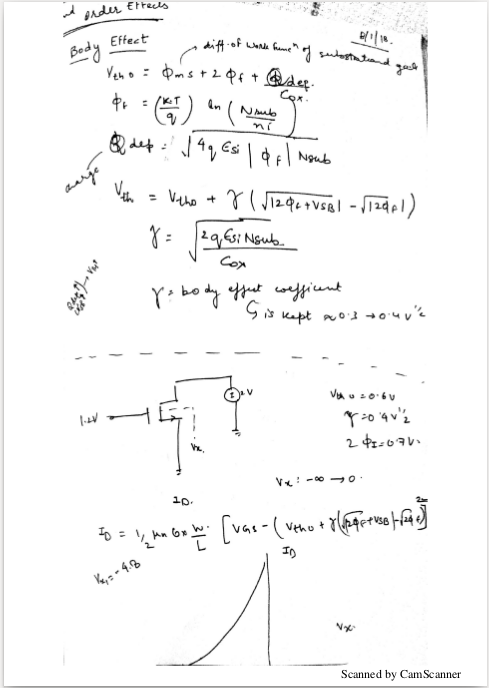 nd order Effects
8/1/18.
Body Effect
diff. of work funcⁿ of substrate and gate
Vth0 = Φms + 2Φf + Qdep/Cox.
Φf = (KT/q) ln (Nsub/ni)
charge
Qdep = √4q εsi |Φf| Nsub
Vth = Vtho + γ (√|2Φf+VSB| - √|2Φf|)
γ = √2q εsi Nsub / Cox
γ = body effect coefficient
is kept ≈ 0.3 → 0.4 V^1/2
1.2V
2V
Vx.
Vtho = 0.6V
γ = 0.4 V^1/2
2ΦF = 0.7V.
Vx : -∞ → 0.
ID.
ID = 1/2 μn Cox W/L [VGS - (Vtho + γ(√|2Φf+VSB| - √|2Φf|)]²
Vx1 = -4.8
ID
Vx.
Scanned by CamScanner